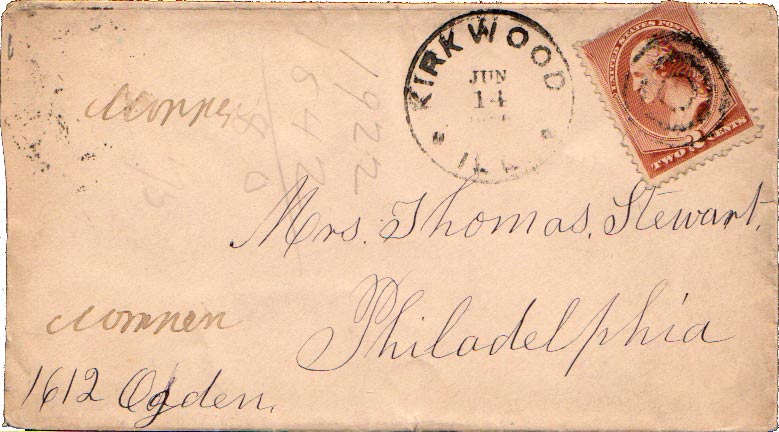 KIRKWOOD
JUN
14
ILL
UNITED STATES POSTAGE
TWO 2 CENTS
1922
1542
Mrs. Thomas. Stewart.
Philadelphia
1612 Ogden.